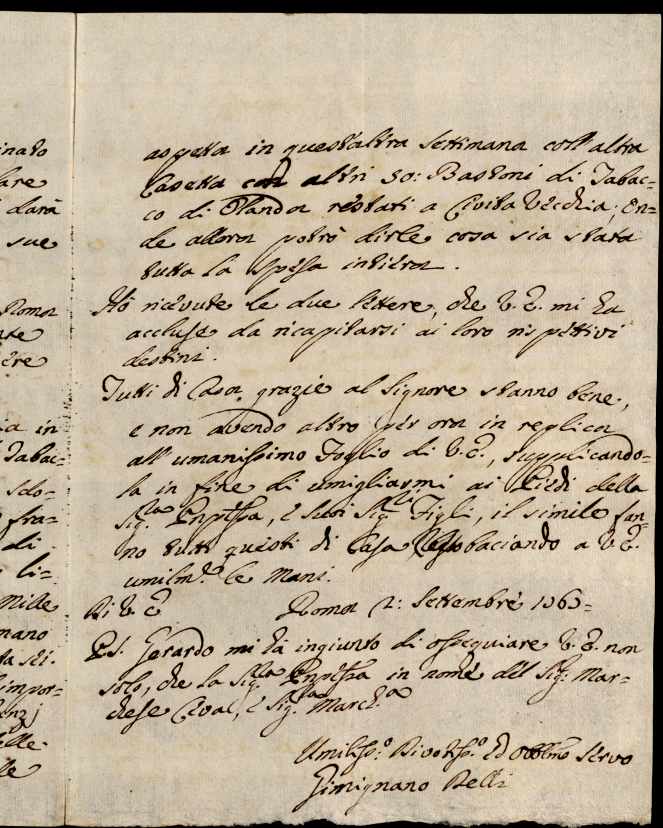 inato
lare
darà
sue
Roma
nte
ière
ia in
Tabac=
sclo-
fra=
di
li=
Mille
mano
ta sei.
impor=
elle
lle
aspetta in quest'altra settimana coll'altra
Casetta con altri 30: Bastoni di Tabac=
co di Olanda restati a Civita Vecchia; On=
de allora potrò dirle cosa sia stata
tutta la spesa intiera.
Hò ricevute le due lettere, che V. E. mi ha
accluse da ricapitarsi ai loro rispettivi
destini.
Tutti di Casa grazie al Signore stanno bene,
e non avendo altro per ora in replica
all'umanissimo Foglio di V. E., supplicando=
la in fine di umigliarmi ai Piedi della
Sig.ra, e suoi Sig.ri Figli, il simile fan=
no tutti questi di Casa baciando a V. E.
umilm.e le Mani.
Di V. E. Roma 2: Settembre 1763=
P.S. Gerardo mi ha ingiunto di ossequiare V. E. non
solo, che la Sig.ra in nome del Sig.r Mar=
chese, e Sig.ra March.a
Umiliss.o Divotiss.o Ed Obblmo Servo
Gimignano Belli